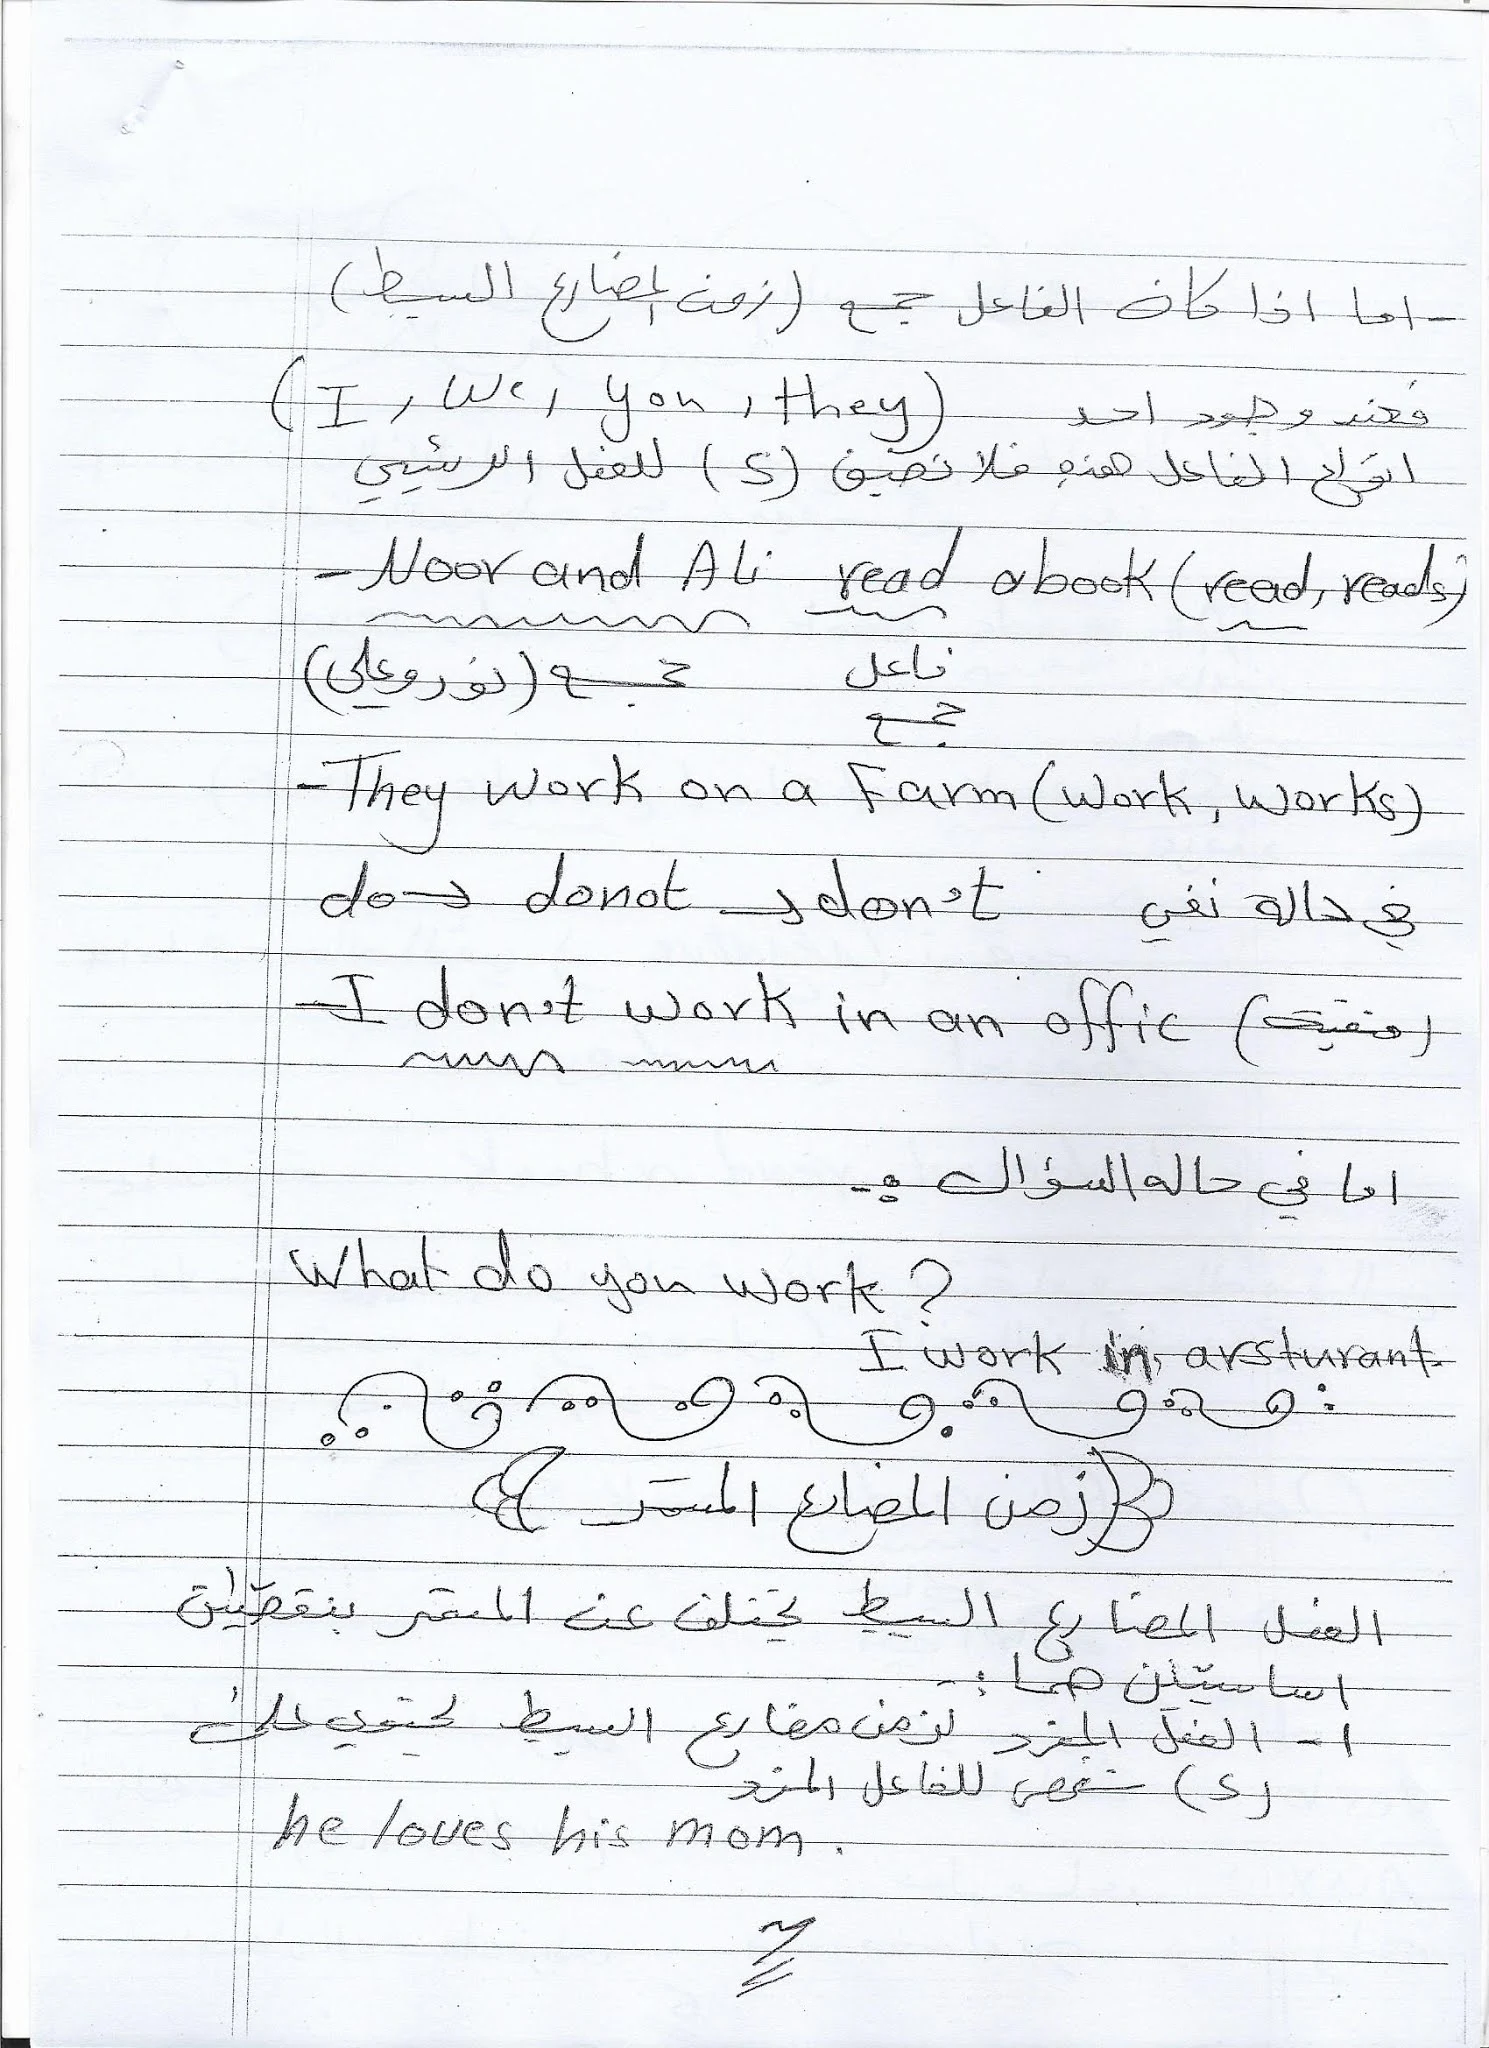 - اما اذا كان الفاعل جمع (زمن المضارع البسيط)
فعند وجود احد (I, we, you, they)
انواع الفاعل هذه فلا نضيف (s) للفعل الرئيسي
- Noor and Ali read a book (read, reads)
فاعل جمع (نور وعلي)
جمع
- They work on a Farm (work, works)
في حاله نفي do → donot → don't
- I don't work in an offic (منفية)
اما في حاله السؤال :-
What do you work?
I work in arsturant.
(زمن المضارع المستمر)
الفعل المضارع البسيط يختلف عن المستمر بنقطتين
اساسيتين هما :-
1- الفعل المفرد لزمن مضارع البسيط يحتوي على
(s) شخص للفاعل المفرد
he loves his mom.